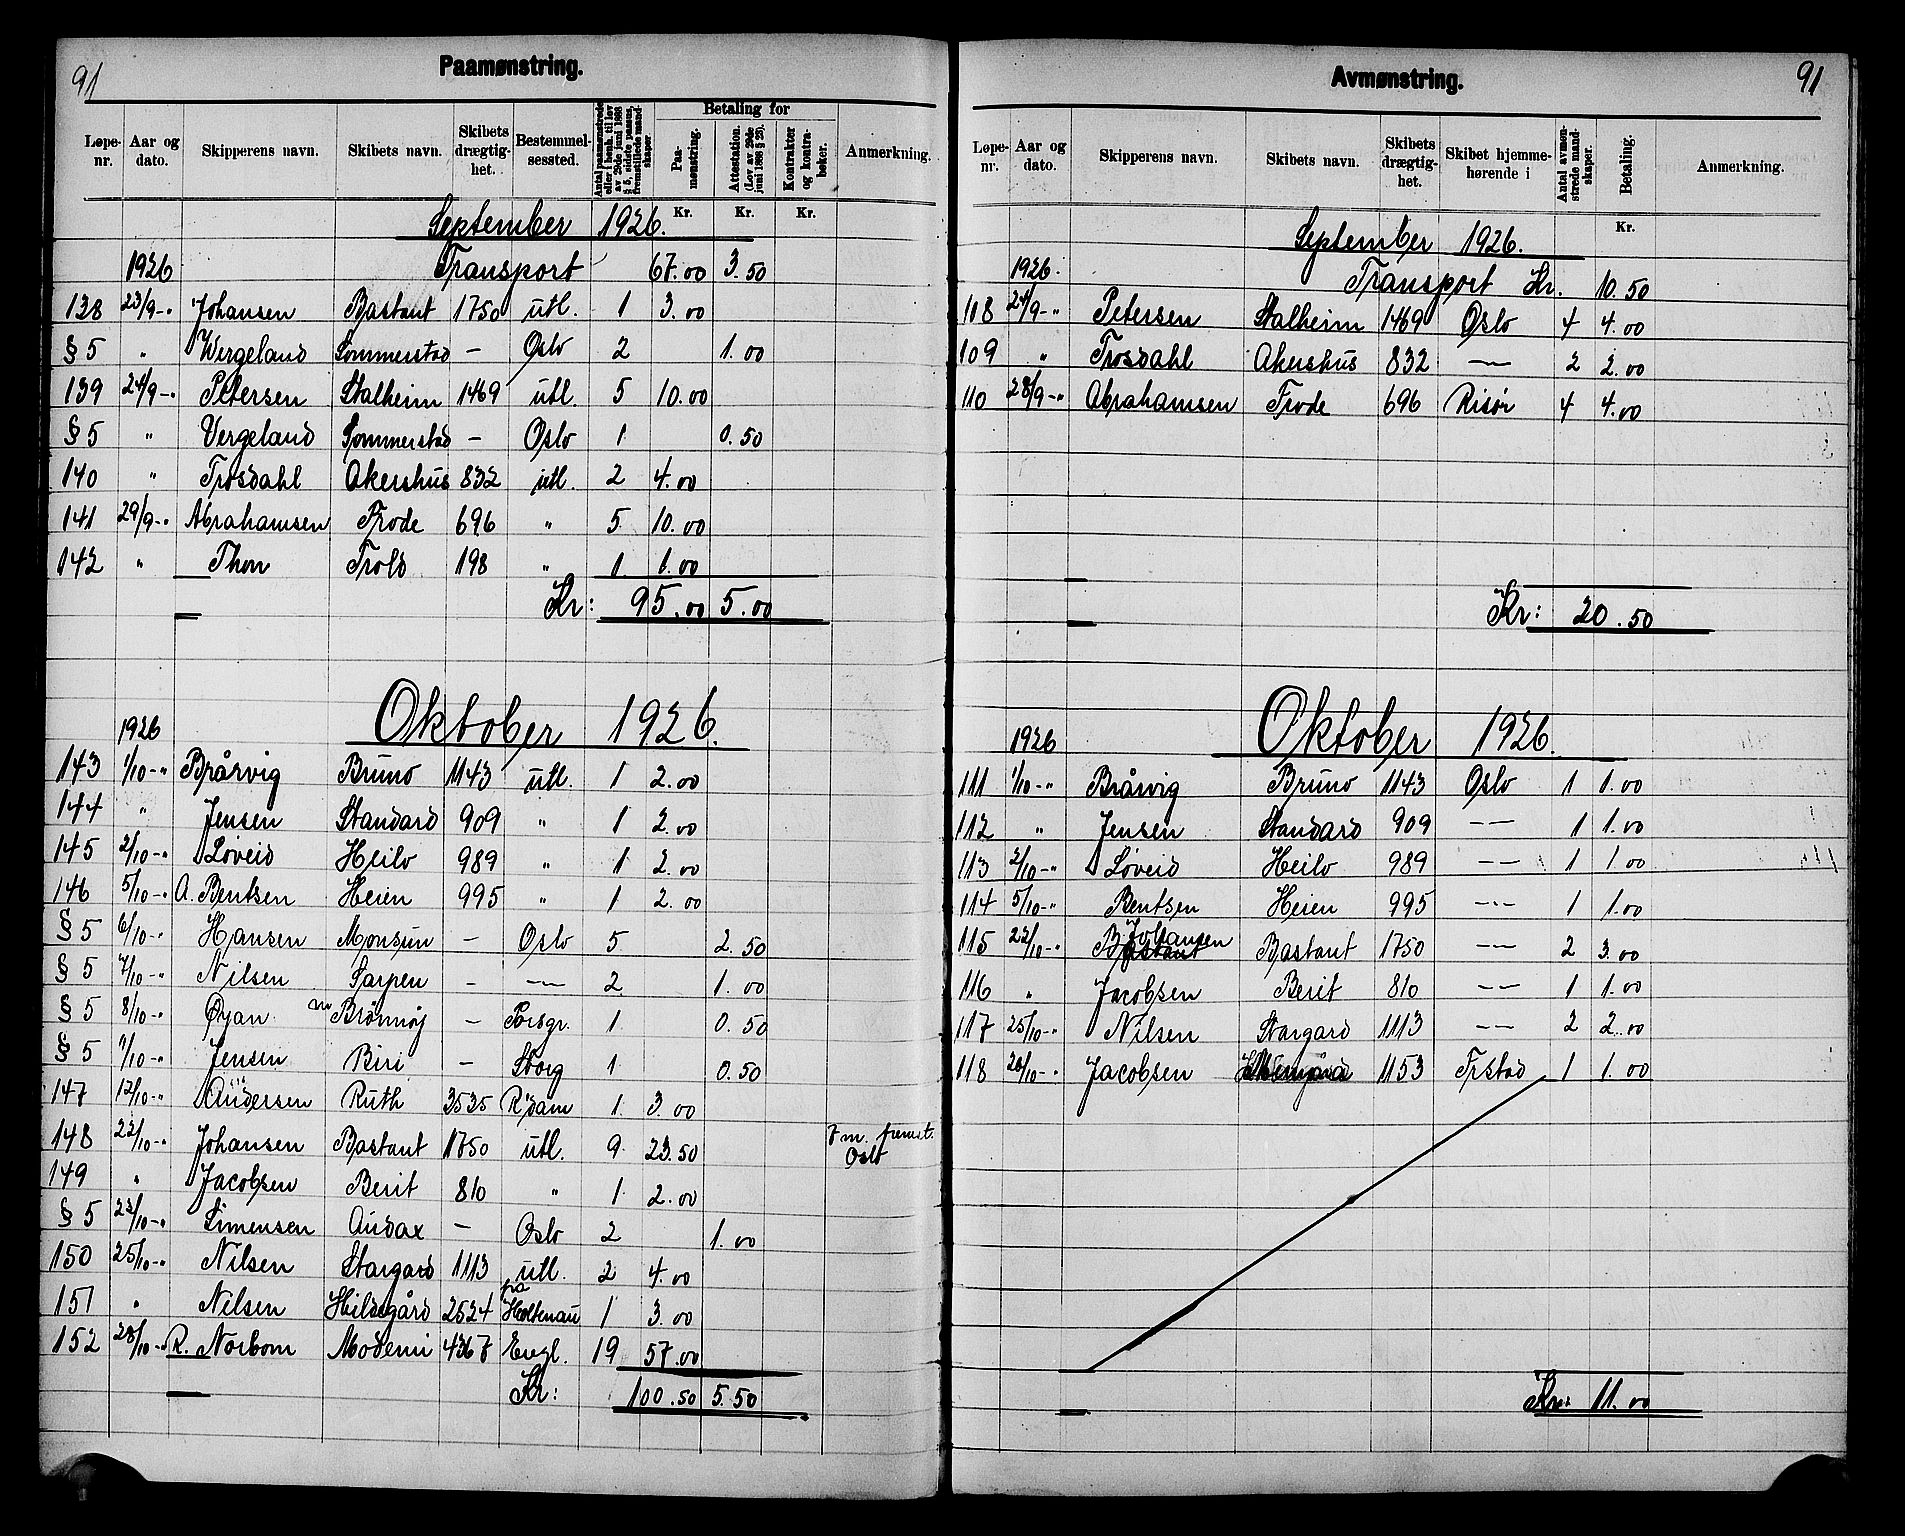 91
Paamønstring.
Løpe-nr. Aar og dato. Skipperens navn. Skibets navn. Skibets drægtighet. Bestemmelsessted. Antal paamønstrede eller i henh. til lov av 29de juni 1888 § 5, sidste passus, fremstillede mandskaper Betaling for Paamønstring. Attestation. (Lov av 29de juni 1888 § 23). Kontrakter og kontrabøker. Anmerkning.
Kr. Kr. Kr.
September 1926.
1926 Transport 67.00 3.50
138 23/9-" Johansen Bastant 1750 utl. 1 3.00
§ 5 " Wergeland Sommerstad – Oslo 2 1.00
139 24/9-" Petersen Stalheim 1469 utl. 5 10.00
§ 5 " Vergeland Sommerstad – Oslo 1 0.50
140 " Trosdahl Akershus 832 utl. 2 4.00
141 29/9-" Abrahamsen Frode 696 " 5 10.00
142 " Thon Trold 198 " 1 1.00
Kr: 95.00 5.00
Oktober 1926.
1926
143 1/10-" Brårvig Bruno 1143 utl. 1 2.00
144 " Jensen Standard 909 " 1 2.00
145 2/10-" Løveid Heilo 989 " 1 2.00
146 5/10-" A. Bentsen Heien 995 " 1 2.00
§ 5 6/10-" Hansen Monsun – Oslo 5 2.50
§ 5 7/10-" Nilsen Sarpen – –"– 2 1.00
§ 5 8/10-" Øyan Brönnöj – Porsgr. 1 0.50
§ 5 "/10-" Jensen Biri – Sborg 1 0.50
147 12/10-" Andersen Ruth 3535 R'dam 1 3.00
148 22/10-" Johansen Bastant 1750 utl. 9 23.50 7 m. fremst. Oslo
149 " Jacobsen Berit 810 " 1 2.00
§ 5 23/10-" Simensen Audax – Oslo 2 1.00
150 25/10-" Nilsen Stargard 1113 utl. 2 4.00
151 " Nilsen Hildegård 2524 på Holtenau 1 3.00
152 28/10-" R. Norbom Modemi 4367 Engl. 19 57.00
Kr: 100.50 5.50
91
Avmønstring.
Løpe-nr. Aar og dato. Skipperens navn. Skibets navn. Skibets drægtighet. Skibet hjemmehørende i Antal avmønstrede mandskaper. Betaling. Anmerkning.
Kr.
September 1926.
1926. Transport Kr. 10.50
108 24/9-" Petersen Stalheim 1469 Oslo 4 4.00
109 " Trosdahl Akershus 832 –"– 2 2.00
110 28/9-" Abrahamsen Frode 696 Risør 4 4.00
Kr: 20.50
Oktober 1926.
1926
111 1/10-" Brårvig Bruno 1143 Oslo 1 1.00
112 " Jensen Standard 909 –"– 1 1.00
113 2/10-" Løveid Heilo 989 –"– 1 1.00
114 5/10-" Bentsen Heien 995 –"– 1 1.00
115 22/10-" Johansen Bastant 1750 –"– 2 3.00
116 " Jacobsen Berit 810 1 1.00
117 25/10-" Nilsen Stargard 1113 –"– 2 2.00
118 28/10-" Jacobsen 1153 Frstad 1 1.00
Kr: 11.00